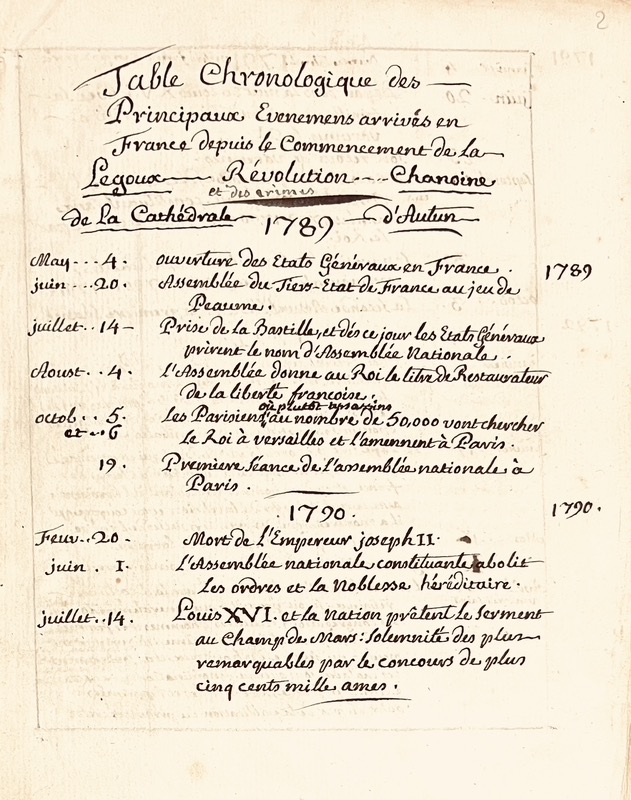 2
Table Chronologique des
Principaux Evenemens arrivés en
France depuis le Commencement de la
Legoux Révolution Chanoine
et des crimes
de La Cathédrale 1789 d'Autun
May --- 4. ouverture des Etats Généraux en France. 1789
juin -- 20. Assemblée du Tiers-Etat de France au jeu de
Peaume.
juillet.. 14 - Prise de la Bastille, et dés ce jour les Etats Généraux
prirent le nom d'Assemblée Nationale.
Aoust.. 4. L'Assemblée donne au Roi le titre de Restaurateur
de la liberté françoise.
ou plutôt
octob.. 5. Les Parisiens au nombre de 50,000 vont chercher
et -- 6 le Roi à versailles et l'amennent à Paris.
19. Premiere séance de l'assemblée nationale à
Paris.
1790. 1790.
Feuv-- 20 - Mort de l'Empereur joseph II.
juin. 1. L'Assemblée nationale constituante abolit
les ordres et la Noblesse héréditaire.
juillet.. 14. Louis XVI. et la nation prêtent le serment
au Champ de Mars: solemnité des plus
remarquables par le concours de plus
cinq cents mille ames.